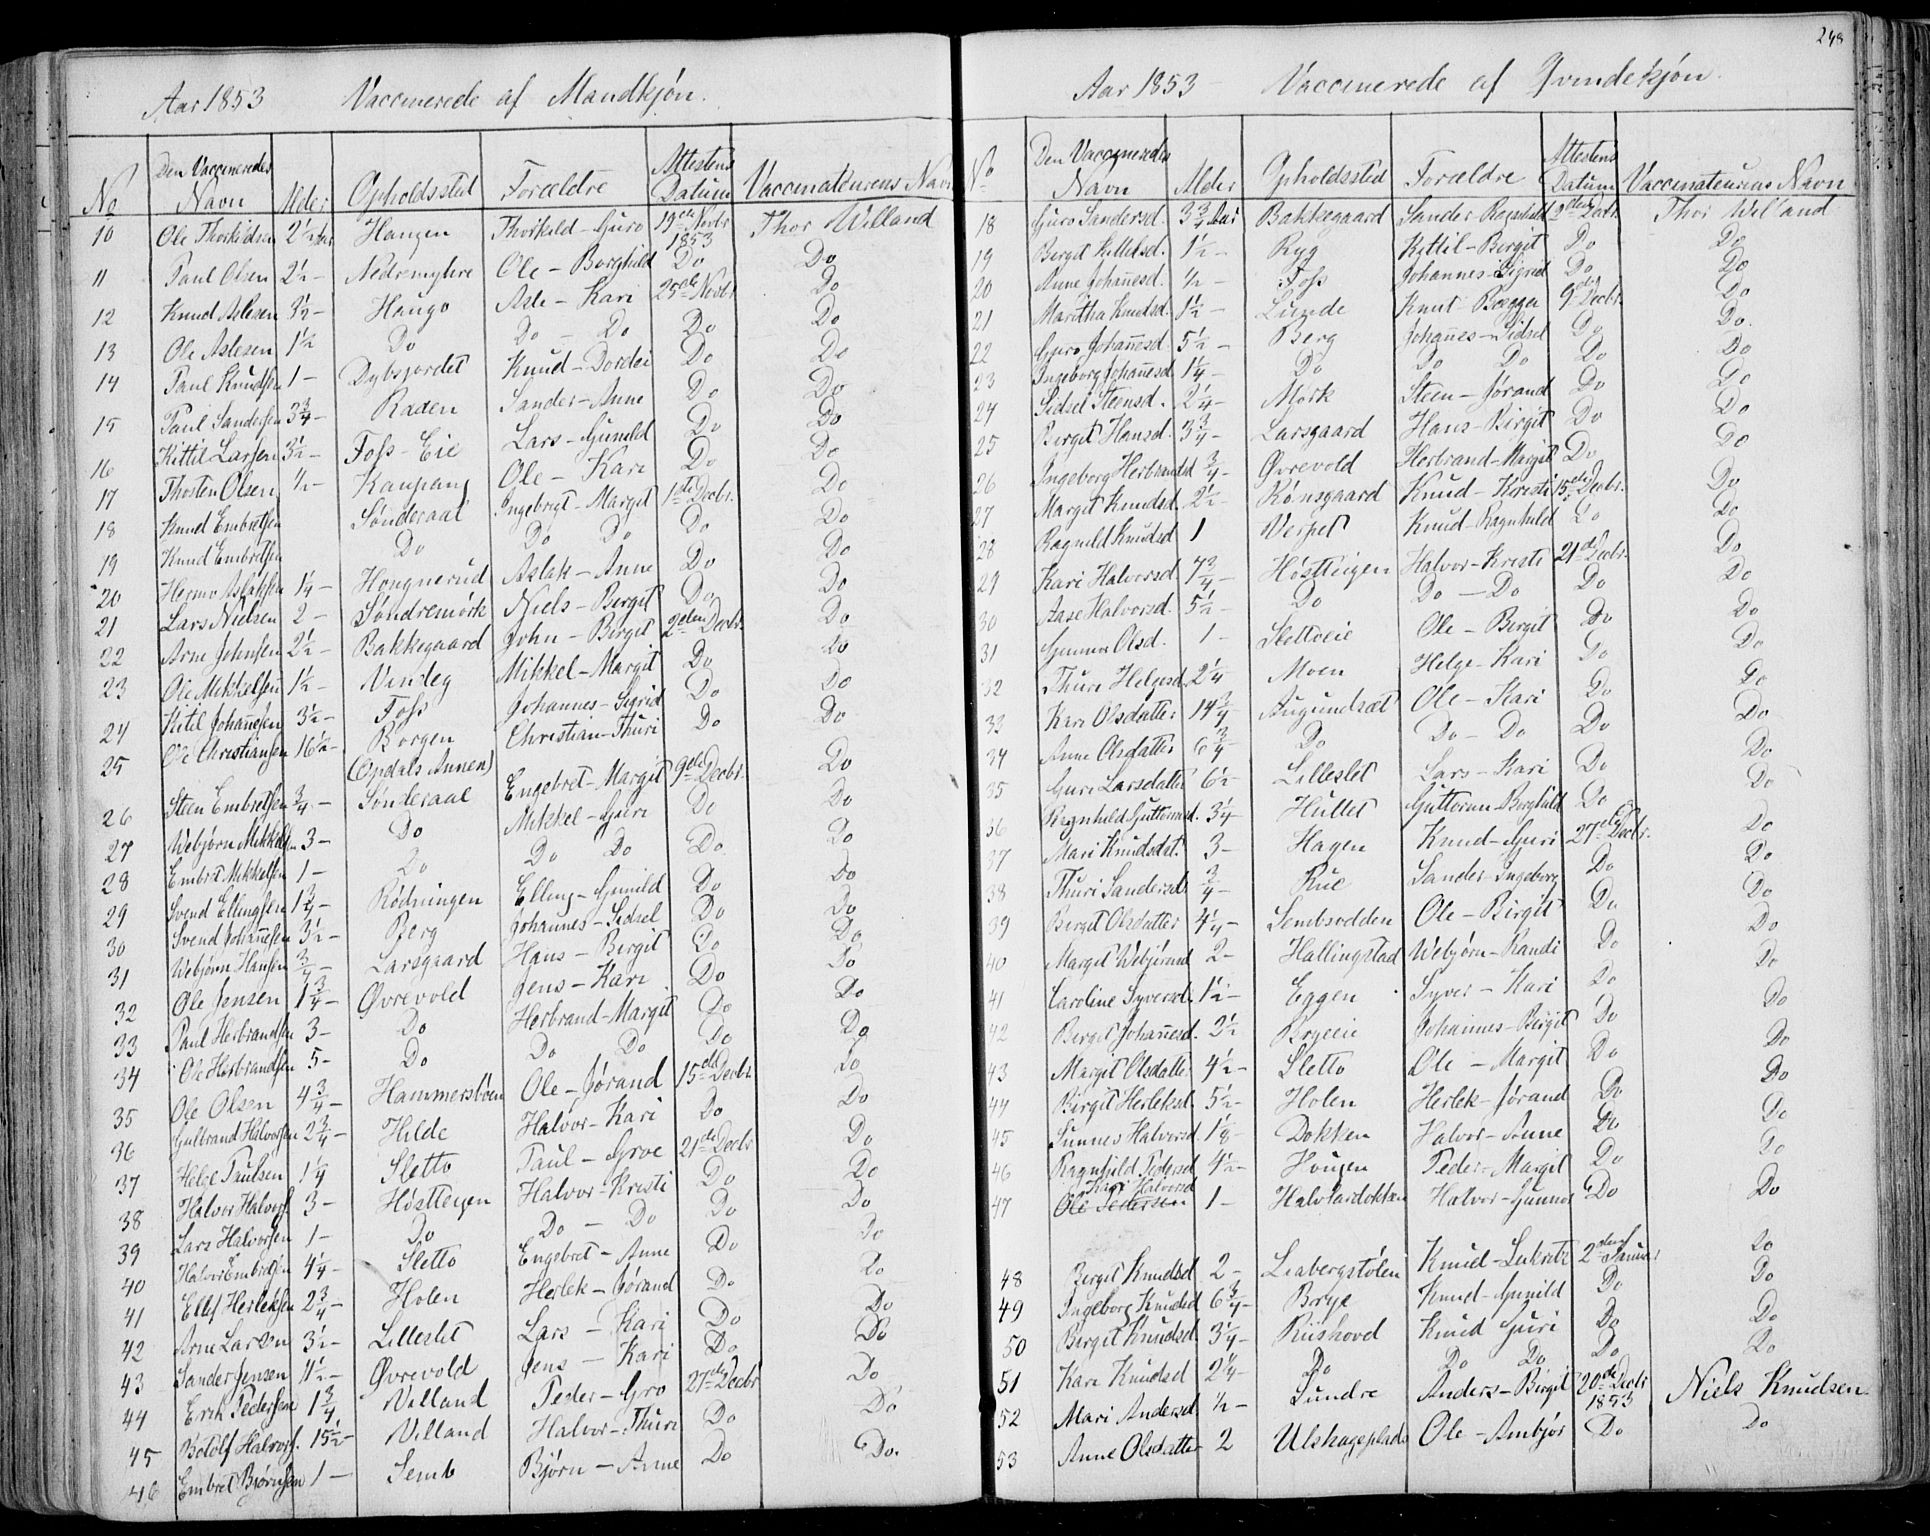 248
Aar 1853 Vaccinerede af Mandkjøn.
No Den Vaccineredes Navn Alder Opholdssted Forældre Attestens Datum Vaccinateurens Navn
10 Ole Thorkildsen 2½ Aar Haugen Thorkild - Guro 19de Novbr 1853 Thor Villand
11 Paul Olsen 2½ - Nedremyhre Ole - Borghild Do Do
12 Knud Aslesen 3½ - Haugo Asle - Kari 25de Novbr Do
13 Ole Aslesen 1½ Do Do - Do Do Do
14 Paul Knudsen 1 - Dybsjordet Knud - Dordei Do Do
15 Paul Sandersen 3¾ - Raaen Sander - Anne Do Do
16 Kittil Larsen 3½ - Foss-Eie Lars - Gunild Do Do
17 Thosten Olsen ½ - Kaupang Ole - Kari Do Do
18 Knud Embretsen Sønderaal Ingebrigt - Margit 1ste Decbr. Do
19 Knud Embretsen Do Do Do Do Do
20 Hermo Aslaksen 1¼ - Hougnerud Aslak - Anne Do Do
21 Lars Nielsen 2 - Søndremørk Niels - Bergit Do Do
22 Arne Johnsen 2½ - Bakkegaard John - Birgit 2den Decbr. Do
23 Ole Mikkelsen 1½ - Vindeg Mikkel - Margit Do Do
24 Kitil Johanesen 3½ - Foss Johannes - Sigrid Do Do
25 Ole Christiansen 16½ - Borgen (Opdals Annex) Christian - Thuri Do Do
26 Steen Embretsen ¾ - Sønderaal Engebret - Margit 9de Decbr. Do
27 Webjørn Mikkelsen 3 - Do Mikkel - Guri Do Do
28 Embret Mikkelsen 1 - Do Do Do Do Do
29 Svend Ellingsen 1¾ - Rødningen Elling - Gunild Do Do
30 Svend Johanesen 3½ - Berg Johannes - Sidsel Do Do
31 Webjørn Hansen ¾ - Larsgaard Hans - Birgit Do Do
32 Ole Jensen 1¾ - Øvrevold Jens - Kari Do Do
33 Paul Herbrandsen 3 - Do Herbrand - Margit Do Do
34 Ole Herbrandsen 5 - Do Do Do Do Do
35 Ole Olsen 4¾ - Hammersbøen Ole - Jørand 15de Decbr Do
36 Gulbrand Halvorsen 2¾ - Hilde Halvor - Kari Do Do
37 Helge Paulsen 1¼ Sletto Paul - Groe 21de Decbr Do
38 Halvor Halvors. 3 - Høstleigen Halvor - Kristi Do Do
39 Lars Halvorsen 1 - Do Do - Do Do Do
40 Halvor Embretsen 4¼ - Sletto Engebret - Anne Do Do
41 Ellef Herleksen 2¾ - Holen Herlek - Jørand Do Do
42 Arne Larsen 3½ - Lilleslet Lars - Kari Do Do
43 Sander Jensen 4½ - Øvrevold Jens - Kari Do Do
44 Erik Pedersen 1¾ Villand Peder - Gro 27de Decbr Do
45 Botolf Halvors. 15½ - Villand Halvor - Thuri Do Do
46 Embret Bjørnsen 1 - Semb Bjørn - Anne Do Do.
Aar 1853 Vaccinerede af Qvindekjøn.
No Den Vaccineredes Navn Alder Opholdssted Forældre Attestens Datum Vaccinateurens Navn
18 Guro Sandersd. 3¾ Aar Bakkegaard Sander - Ragnhild 2den Decbr. Thor Villand
19 Bergit Kittelsd. 1½ - Ryg Kittil - Birgit Do Do
20 Anne Johanesd. ½ - Foss Johannes - Sigrid Do Do
21 Maritha Knudsd. 1½ - Lunde Knut - Bægga 9de Decbr. Do
22 Guro Johanesd 5½ - Berg Johanes - Sidsel Do Do.
23 Ingeborg Johanesd 1¼ - Do Do Do Do Do
24 Sidsel Steensd. 2¼ - Mørk Steen - Jørand Do Do
25 Bergit Hansd. 3¾ - Larsgaard Hans - Birgit Do Do
26 Ingeborg Herbrandsd ¾ - Øvrevold Herbrand - Margit Do Do
27 Margit Knudsd. 2½ - Rønsgaard Knud - Kristi 15de Decbr. Do
28 Ragnild Knudsd 1 Vespet Knud - Ragnhild Do Do
29 Kari Halvorsd. 7¾ - Høstleigen Halvor - Kristi 21de Decbr. Do
30 Aase Halvorsd. 5½ - Do Do - Do Do Do
31 Gunnor Olsd. 1 - Sletteeie Ole - Birgit Do Do
32 Thuri Helgesd. 2¼ Moen Helge - Kari Do Do
33 Kari Olsdatter 14¾ Augundsæt Ole - Kari Do Do
34 Anne Olsdatter 6¾ - Do Do - Do Do Do
35 Guri Larsdatter 6½ - Lilleslet Lars - Kari Do Do
36 Ragnhild Guttormsd. 3¼ - Hullet Guttorm - Borghild Do Do
37 Mari Knudsdat. 3 - Hagen Knud - Guri 27de Decbr. Do
38 Thuri Sandersd. ¾ - Rue Sander - Ingeborg Do Do
39 Birgit Olsdatter 4¼ - Sembsodden Ole - Birgit Do Do
40 Margit Webjørnsd 2 - Hallingstad Webjørn - Randi Do Do
41 Caroline Syversd. 1½ - Eggen Syver - Kari Do Do
42 Bergit Johanesd. 3½ Bryeeie Johannes - Birgit Do Do
43 Margit Olsdatter 4½ - Sletto Ole - Margit Do Do
44 Birgit Herleksd. 5½ - Holen Herlek - Jørand Do Do
45 Sunnev Halvorsd 1⅛ - Dokken Halvor - Anne Do Do
46 Ragnhild Pedersd 4½ - Hougen Peder - Margit Do Do
47 Kari Halvorsd Ole Pedersen 1 - Halvlardokken Halvor - Gunnor Do Do
48 Bergit Knudsd 2 - Liabergstølen Knud - 2den Januar Do
49 Ingeborg Knudsd 6¾ - Brye Knud - Gunild Do Do
50 Birgit Knudsd. 3¼ - Riishovd Knud Guri Do Do
51 Kari Knudsd 2¼ - Do Do Do Do Do
52 Mari Andersd. ½ - Sundre Anders - Birgit 20de Decbr 1853 Niels Knudsen
53 Anne Olsdatter 2 Ulshageplads Ole - Ambjør Do Do